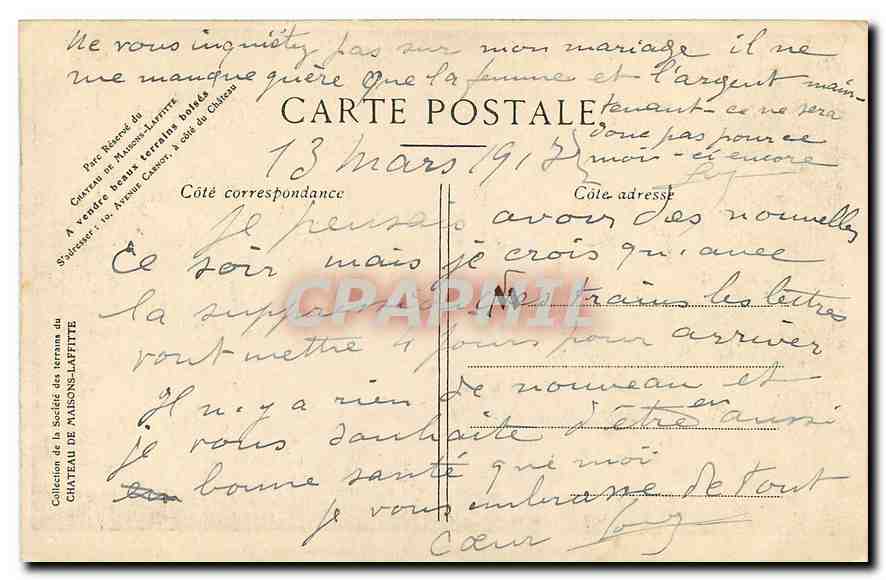 Ne vous inquiétez pas sur mon mariage il ne
me manque guère que la femme et l'argent main-
tenant - ce ne sera
donc pas pour ce
mois-ci encore
CARTE POSTALE
13 mars 1917
Parc Réservé du
CHATEAU DE MAISONS-LAFFITTE
A vendre beaux terrains boisés
S'adresser : 10, AVENUE CARNOT, à côté du Château
Côté correspondance
Côte adresse
Je pensais avoir des nouvelles
ce soir mais je crois qu'avec
la suppression des trains les lettres
vont mettre 4 jours pour arriver
Il n'y a rien de nouveau et
je vous souhaite d'être en aussi
bonne santé que moi
je vous embrasse de tout
cœur
Collection de la Société des terrains du
CHATEAU DE MAISONS-LAFFITTE
CPAPHIL